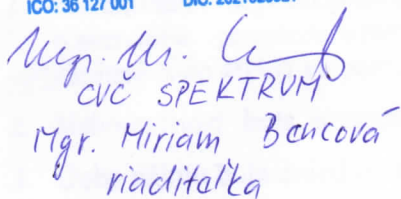 IČO: 36 127 001
Mgr. M.
CVČ SPEKTRUM
Mgr. Miriam Bencová
riaditeľka